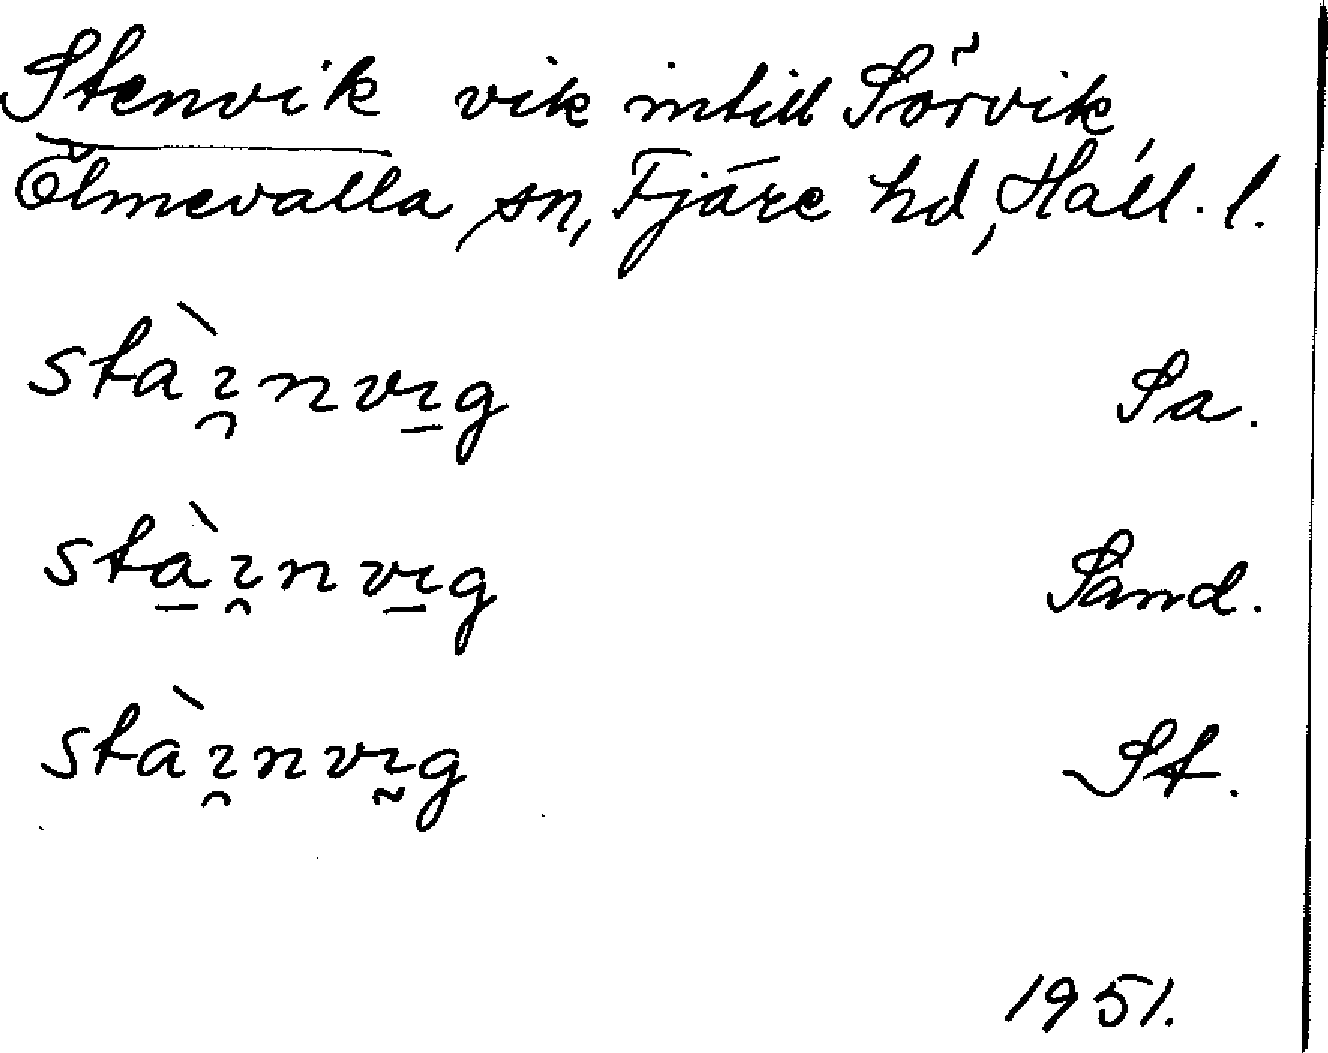 Stenvik vik intill Sörvik,
Ölmevalla sn, Fjäre hd, Hall. l.
stàı̯nvı̱g Sa.
stà̱ı̯nvı̱g Sand.
stàı̯nvı̰g St.
1951.